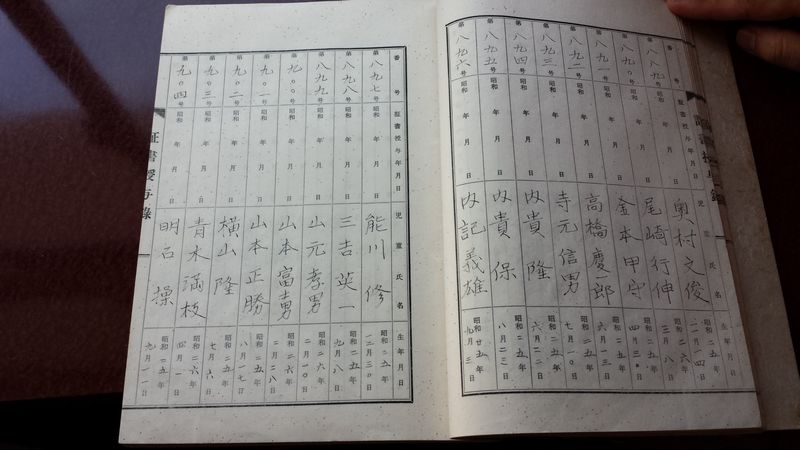 証書授与録
番号 証書授与年月日 児童氏名 生年月日
第八八九号 昭和 年 月 日 奥村文俊 昭和二五年一一月一四日
第八九〇号 昭和 年 月 日 尾崎行伸 昭和二六年三月八日
第八九一号 昭和 年 月 日 釜本甲守 昭和二五年四月三〇日
第八九二号 昭和 年 月 日 高橋慶一郎 昭和二五年六月一三日
第八九三号 昭和 年 月 日 寺元信男 昭和二五年七月一〇日
第八九四号 昭和 年 月 日 内貴隆 昭和二五年六月二二日
第八九五号 昭和 年 月 日 内貴保 昭和二五年八月二三日
第八九六号 昭和 年 月 日 内記義雄 昭和廿五年九月三日
番号 証書授与年月日 児童氏名 生年月日
第八九七号 昭和 年 月 日 能川修 昭和二五年一二月三〇日
第八九八号 昭和 年 月 日 三吉英一 昭和二五年九月八日
第八九九号 昭和 年 月 日 山元孝男 昭和二六年二月一〇日
第九〇〇号 昭和 年 月 日 山本富士男 昭和二六年二月二八日
第九〇一号 昭和 年 月 日 山本正勝 昭和二五年八月一七日
第九〇二号 昭和 年 月 日 横山隆 昭和二五年七月六日
第九〇三号 昭和 年 月 日 青木満枝 昭和二六年四月一日
第九〇四号 昭和 年 月 日 明石操 昭和二五年九月一一日
証書授与録